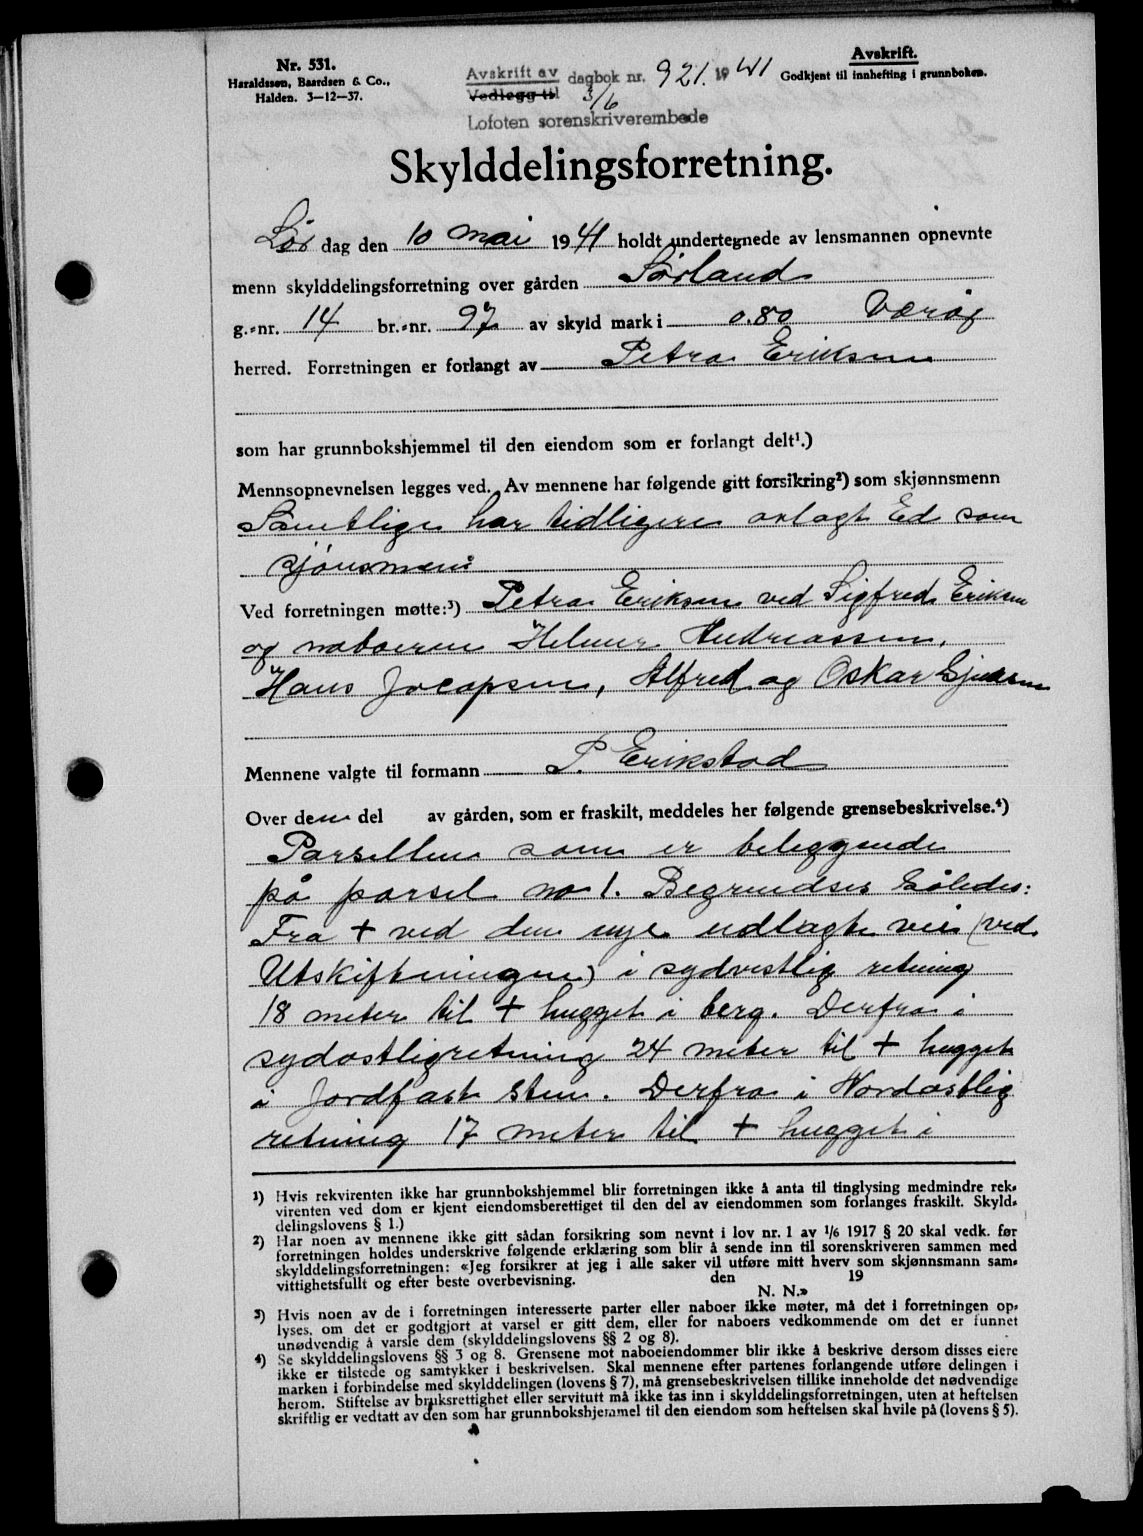 Nr. 531.
Haraldssen, Baardsen & Co.,
Halden. 3-12-37.
Avskrift av
Vedlegg til
dagbok nr. 921. 1941
3/6
Lofoten sorenskriverembede
Avskrift.
Godkjent til innhefting i grunnboken.
Skylddelingsforretning.
Lør dag den 10 mai 1941 holdt undertegnede av lensmannen opnevnte
menn skylddelingsforretning over gården Sørland
g.-nr. 14 br.-nr. 97 av skyld mark i 0.80 Værøy
herred. Forretningen er forlangt av Petra Eriksen
som har grunnbokshjemmel til den eiendom som er forlangt delt¹.)
Mennsopnevnelsen legges ved. Av mennene har følgende gitt forsikring²) som skjønnsmenn
Samtlige har tidligere avlagt Ed som
sjönsmenn
Ved forretningen møtte:³) Petra Eriksen ved Sigfred Eriksen
og naboerne Hilmer Andreassen,
Hans Jocopsen, Alfred og Oskar
Mennene valgte til formann P. Erikstad
Over den del av gården, som er fraskilt, meddeles her følgende grensebeskrivelse.⁴)
Parsellen som er beleggende
på parsel no 1. Begrendses Således:
Fra + ved den nye udlagte vei (ved
Utskiftningen) i sydvestlig retning
18 meter til + hugget i berg. Derfra i
sydostligretning 24 meter til + hugget
i Jordfast sten. Derfra i Nordostlig
retning 17 meter til + hugget i
¹) Hvis rekvirenten ikke har grunnbokshjemmel blir forretningen ikke å anta til tinglysing medmindre rek-
virenten ved dom er kjent eiendomsberettiget til den del av eiendommen som forlanges fraskilt. Skyld-
delingslovens § 1.)
²) Har noen av mennene ikke gitt sådan forsikring som nevnt i lov nr. 1 av 1/6 1917 § 20 skal vedk. før
forretningen holdes underskrive følgende erklæring som blir å sende inn til sorenskriveren sammen med
skylddelingsforretningen: «Jeg forsikrer at jeg i alle saker vil utføre mitt hverv som skjønnsmann sam-
vittighetsfullt og efter beste overbevisning. den 19
N. N.»
³) Hvis noen av de i forretningen interesserte parter eller naboer ikke møter, må det i forretningen op-
lyses, om det er godtgjort at varsel er gitt dem, eller for naboers vedkommende om det er funnet
unødvendig å varsle dem (skylddelingslovens §§ 2 og 8).
⁴) Se skylddelingslovens §§ 3 og 8. Grensene mot naboeiendommer blir ikke å beskrive dersom disses eiere
ikke er tilstede og samtykker i beskrivelsen. Skal mennene efter partenes forlangende utføre delingen i
marken i forbindelse med skylddelingen (lovens § 7), må grensebeskrivelsen tillike inneholde det nødvendige
herom. Stiftelse av bruksrettighet eller servitutt må ikke tas inn i skylddelingsforretningen, uten at heftelsen
skriftlig er vedtatt av den som har grunnbokshjemmel til den eiendom som heftelsen skal hvile på (lovens § 5).